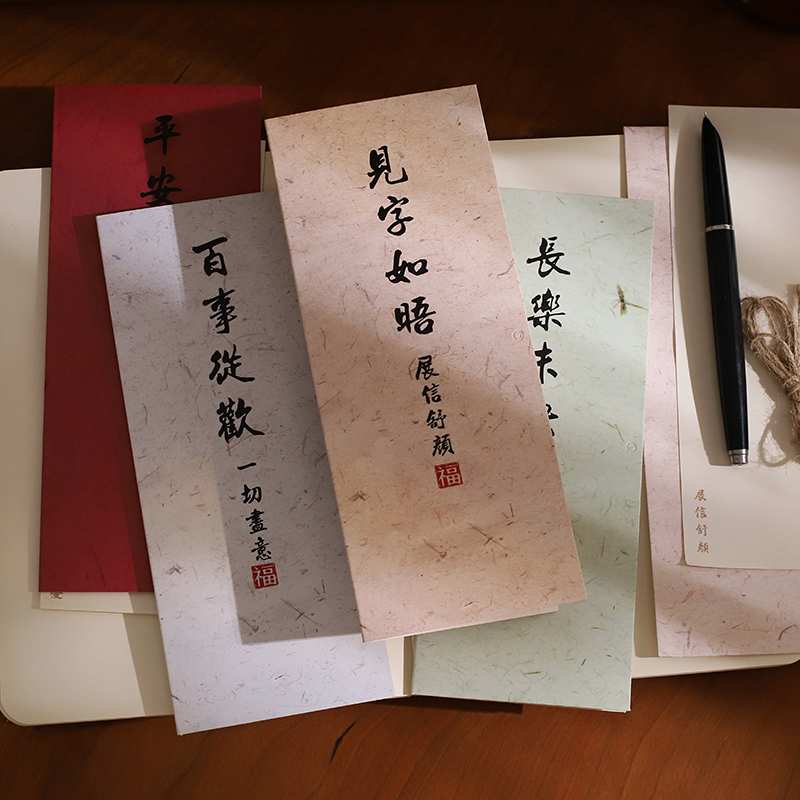 平安
百事從歡
一切盡意
福
見字如晤
展信舒顏
福
長樂未
展信舒顏